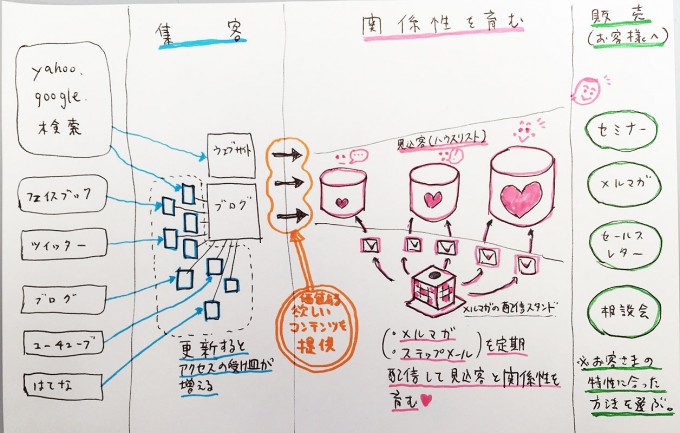 集客
関係性を育む
販売
(お客様へ)
yahoo.
google.
検索
フェイスブック
ツイッター
ブログ
ユーチューブ
はてな
ウェブサイト
ブログ
更新すると
アクセスの受け皿が
増える
価値ある
欲しい
コンテンツを
提供
見込客(ハウスリスト)
メルマガの配信スタンド
・メルマガ
・ステップメール
を定期
配信して見込客と関係性を
育む♥
セミナー
メルマガ
セールス
レター
相談会
※お客さまの
特性に合った
方法を選ぶ。